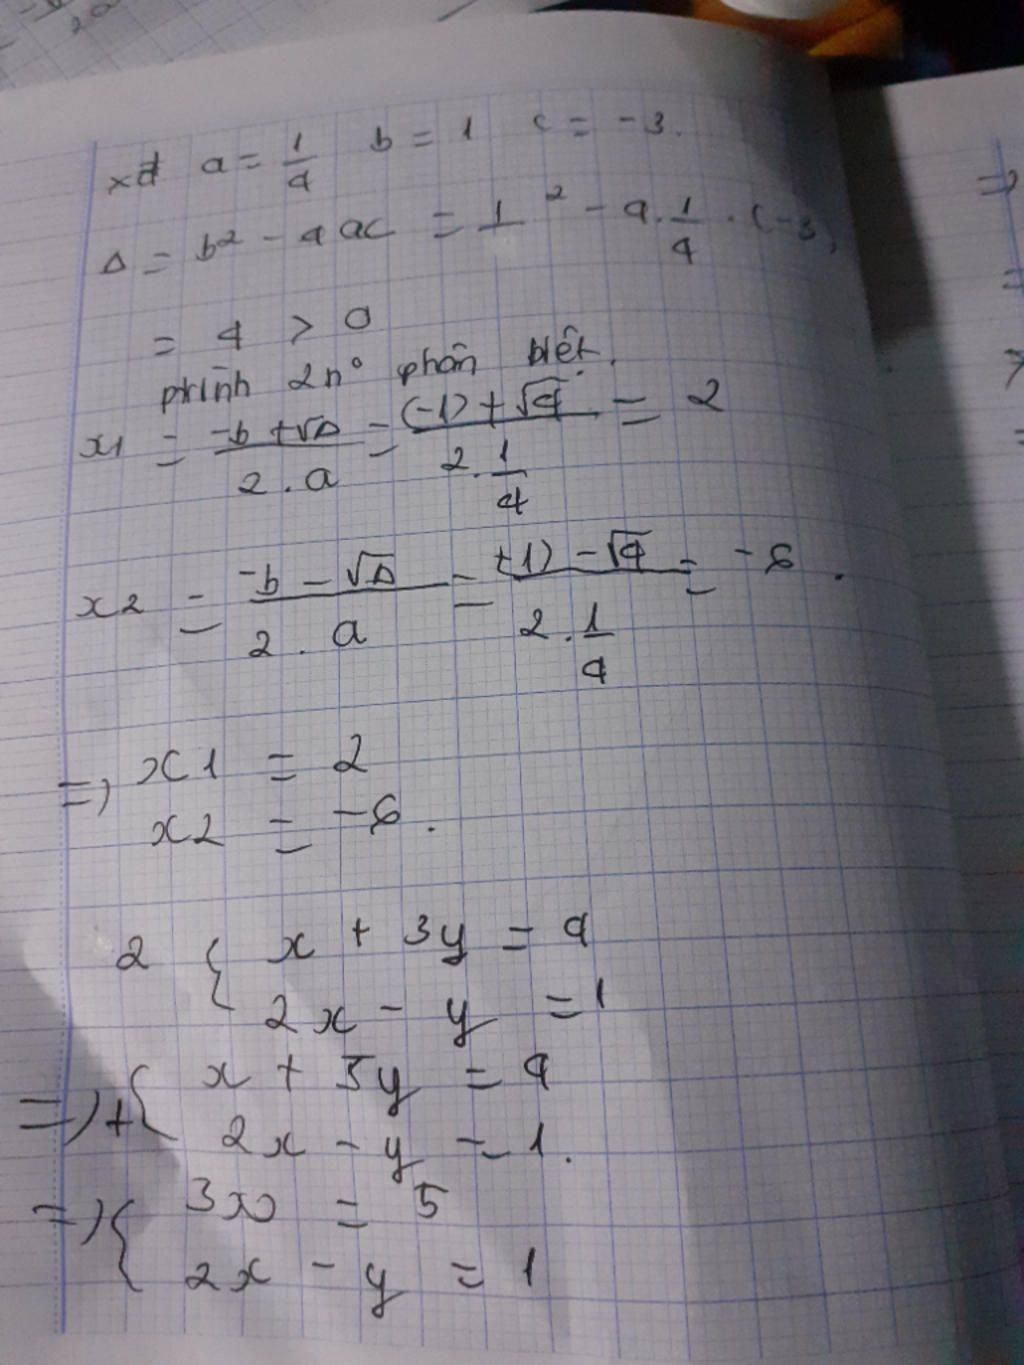 xđ a = 1/4 b = 1 c = -3.
Δ = b² - 4ac = 1² - 4.1/4.(-3)
= 4 > 0
ptrình 2n° phân biệt.
x1 = (-b + √Δ)/(2.a) = ((-1) + √4)/(2.1/4) = 2
x2 = (-b - √Δ)/(2.a) = ((-1) - √4)/(2.1/4) = -6.
=> x1 = 2
x2 = -6.
2 { x + 3y = 4
2x - y = 1
=> + { x + 3y = 4
2x - y = 1.
=> { 3x = 5
2x - y = 1